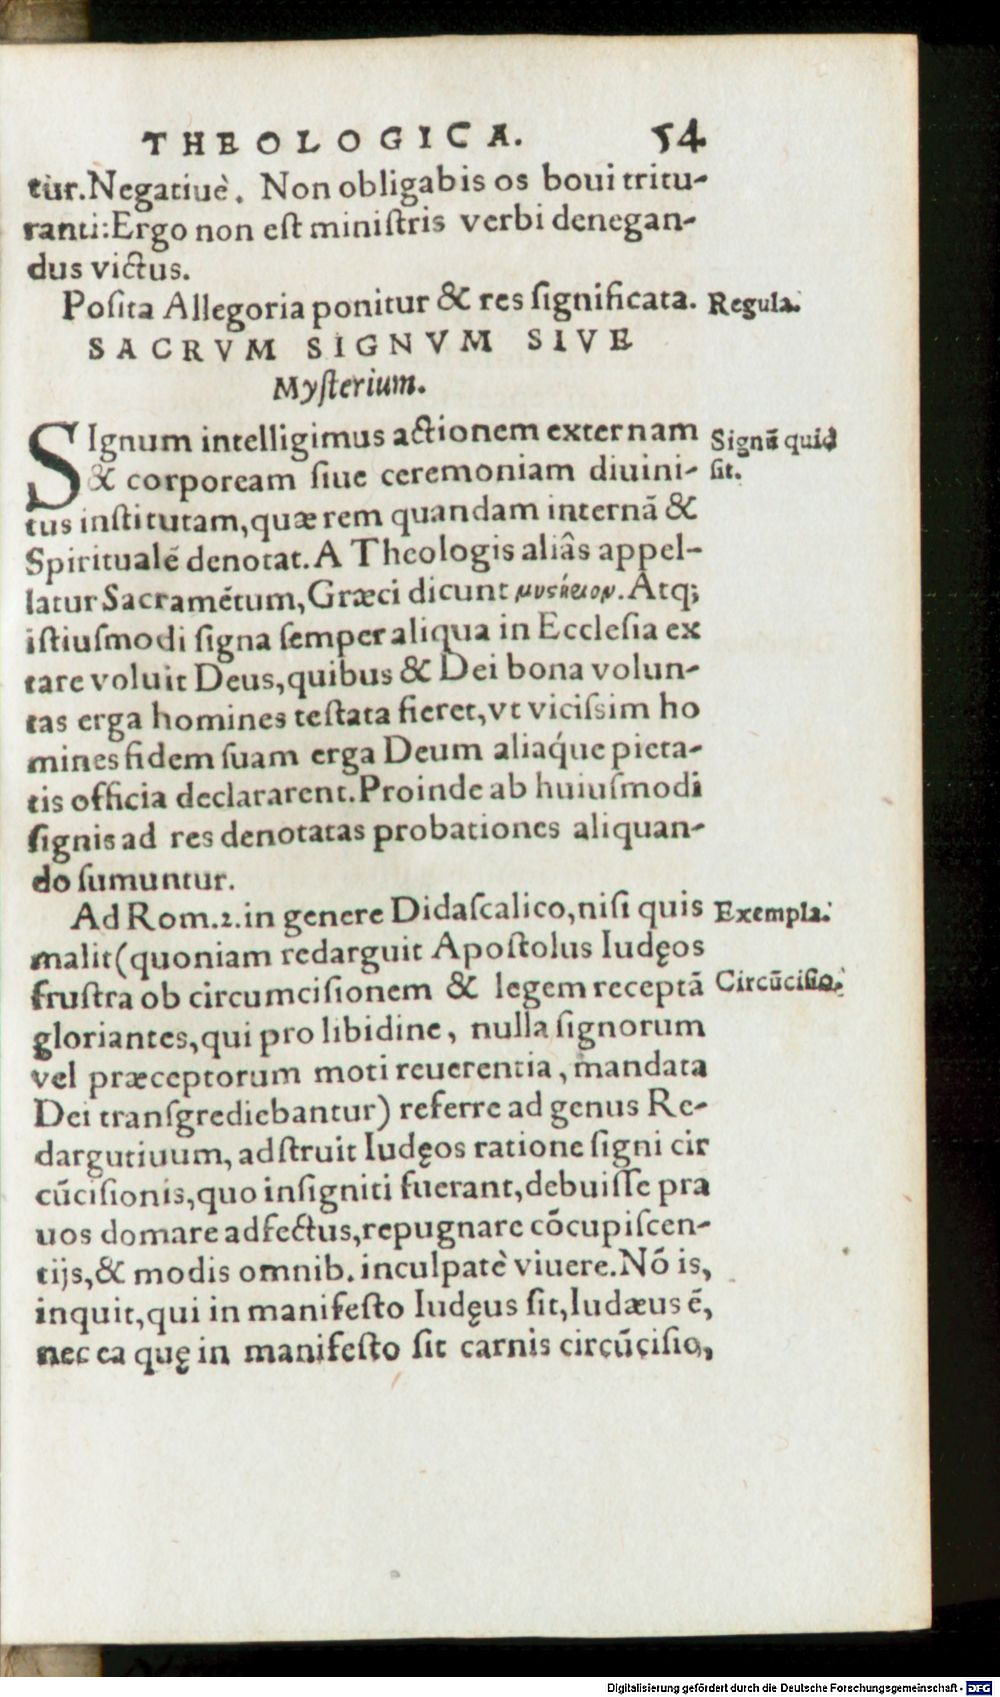 THEOLOGICA. 54
tur. Negatiuè. Non obligabis os boui tritu-
ranti: Ergo non est ministris verbi denegan-
dus victus.
Posita Allegoria ponitur & res significata. Regula.
SACRVM SIGNVM SIVE
Mysterium.
SIgnum intelligimus actionem externam Signū quid
& corpoream siue ceremoniam diuini- sit.
tus institutam, quæ rem quandam internā &
Spiritualē denotat. A Theologis aliâs appel-
latur Sacramētum, Græci dicunt μυστήριον. Atq;
istiusmodi signa semper aliqua in Ecclesia ex
tare voluit Deus, quibus & Dei bona volun-
tas erga homines testata fieret, vt vicissim ho
mines fidem suam erga Deum aliaq́ue pieta-
tis officia declararent. Proinde ab huiusmodi
signis ad res denotatas probationes aliquan-
do sumuntur.
Ad Rom. 2. in genere Didascalico, nisi quis Exempla.
malit (quoniam redarguit Apostolus Iudęos
frustra ob circumcisionem & legem receptā Circūcisio.
gloriantes, qui pro libidine, nulla signorum
vel præceptorum moti reuerentia, mandata
Dei transgrediebantur) referre ad genus Re-
dargutiuum, adstruit Iudęos ratione signi cir
cūcisionis, quo insigniti fuerant, debuisse pra
uos domare adfectus, repugnare cōcupiscen-
tijs, & modis omnib. inculpatè viuere. Nō is,
inquit, qui in manifesto Iudęus sit, Iudæus ē,
nec ea quę in manifesto sit carnis circūcisio,
Digitalisierung gefördert durch die Deutsche Forschungsgemeinschaft - DFG